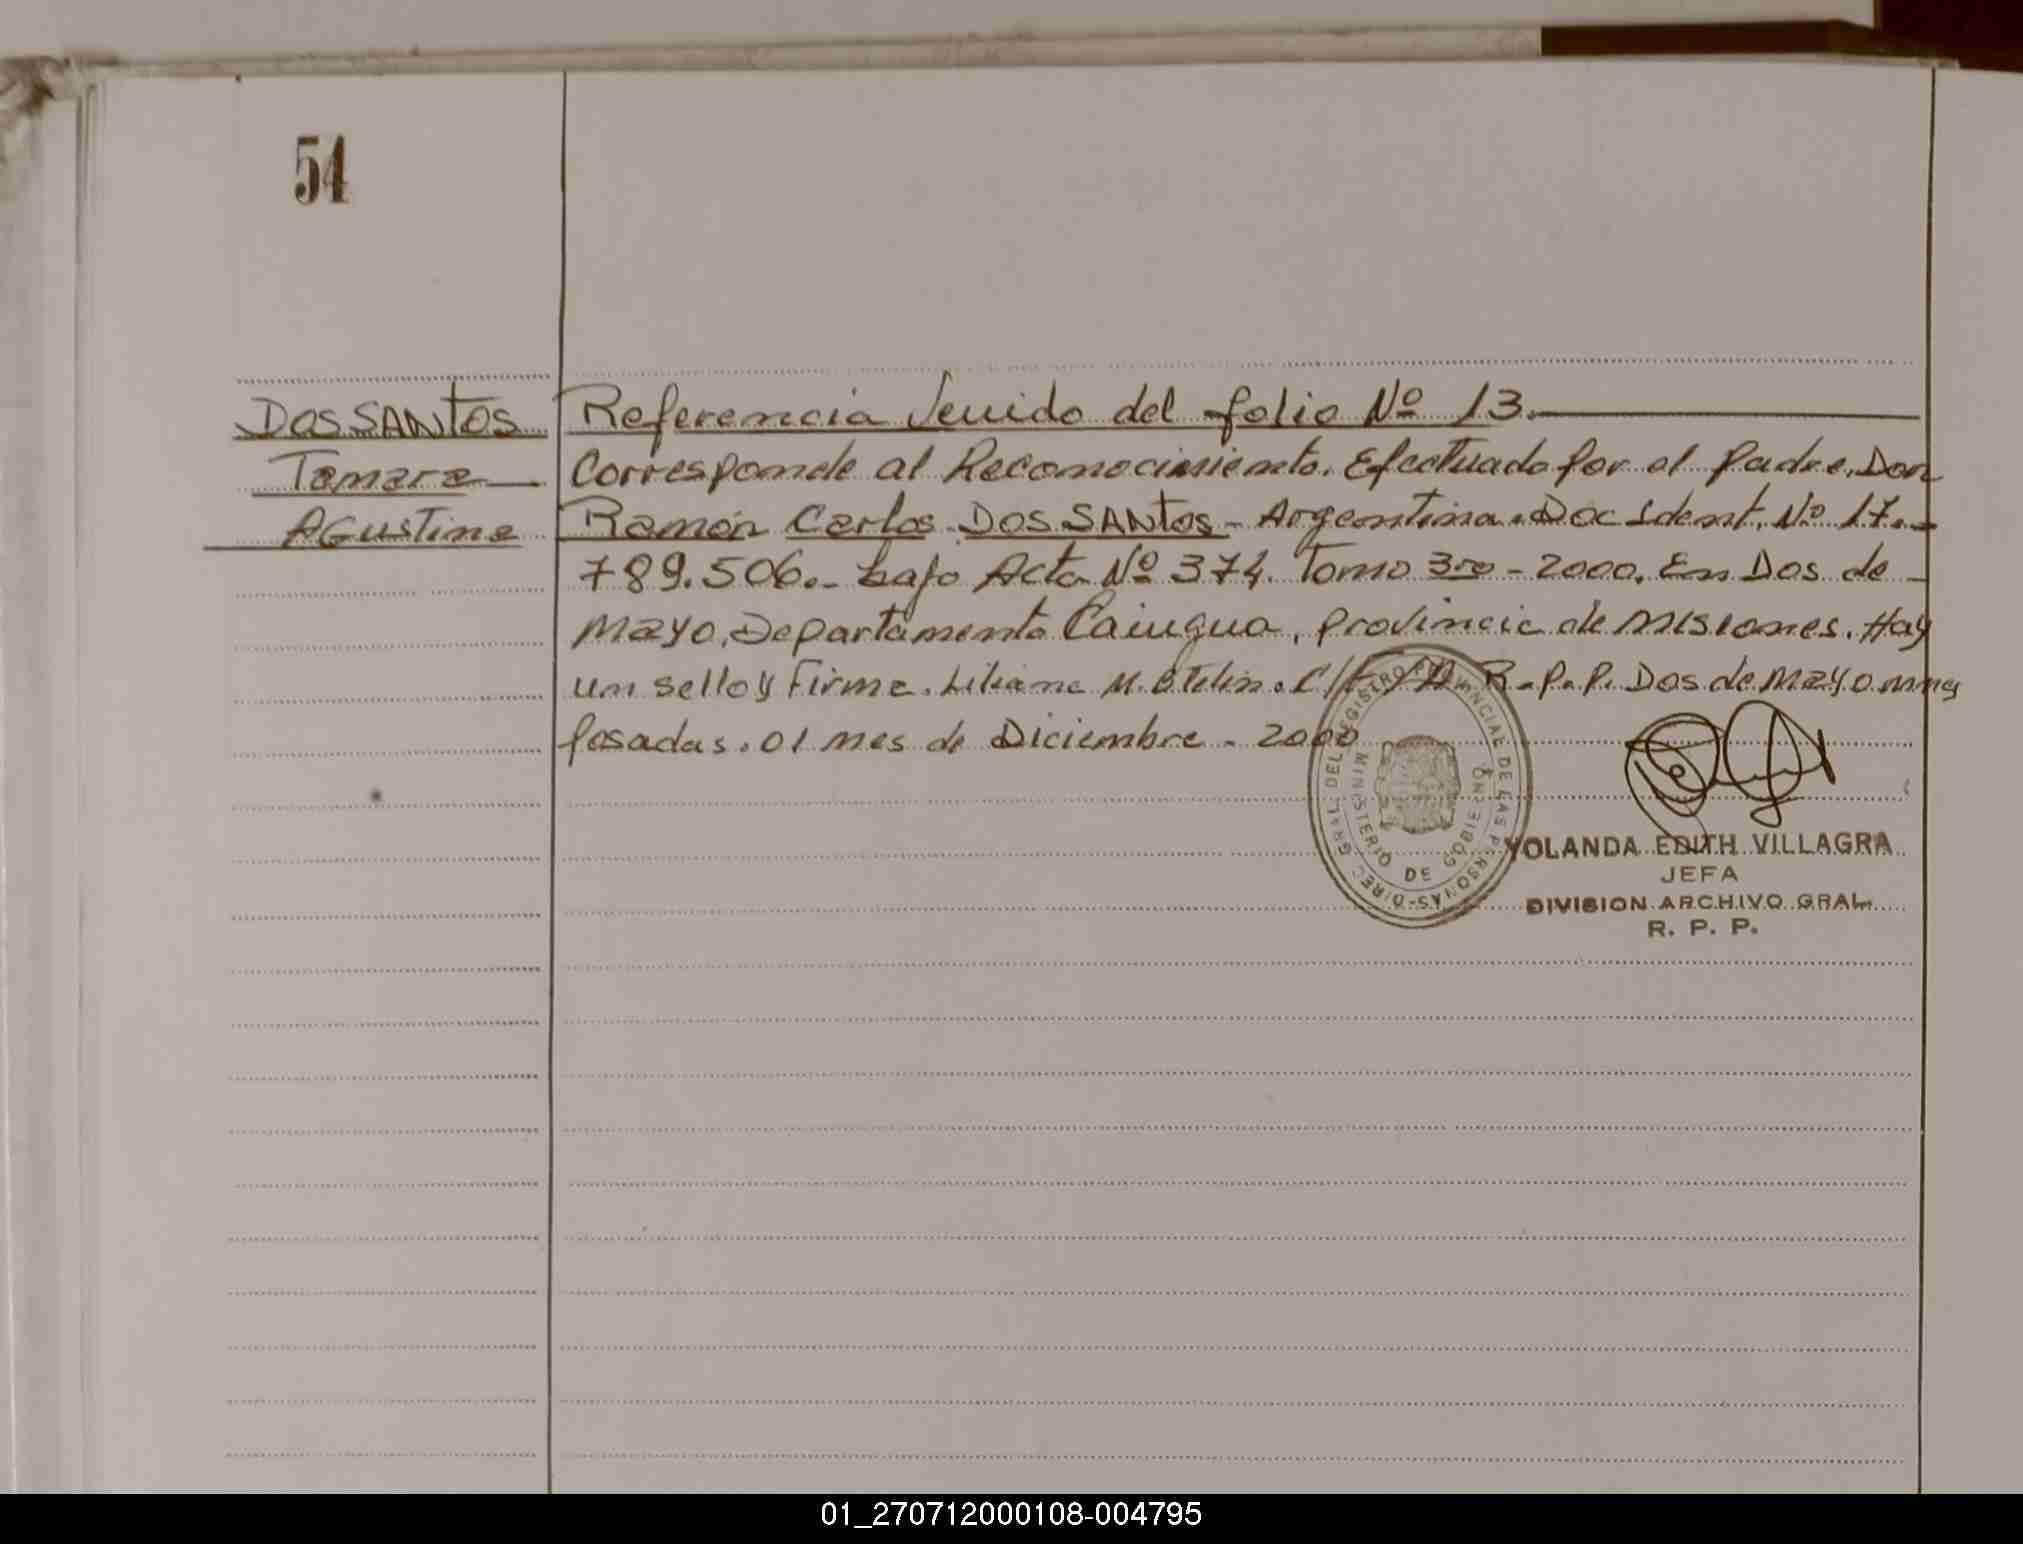 54
DOS SANTOS
Tamara
AGustina
Referencia Venido del folio Nº 13.
Corresponde al Reconocimiento. Efectuado por el Padre. Don
Ramón Carlos DOS SANTOS - Argentina. Doc Ident. Nº 17.-
789.506.- bajo Acta Nº 374. Tomo 3ro - 2000. En Dos de -
Mayo, Departamento Cainguá, provincia de Misiones. Hay
un sello y Firma. Liliana M. R.P.P. Dos de Mayo. Mnes
Posadas. 01 mes de Diciembre - 2000
DIREC. GRAL. DEL REGISTRO PROVINCIAL DE LAS PERSONAS
MINISTERIO DE GOBIERNO
YOLANDA EDITH VILLAGRA
JEFA
DIVISION ARCHIVO GRAL.
R. P. P.
01_270712000108-004795